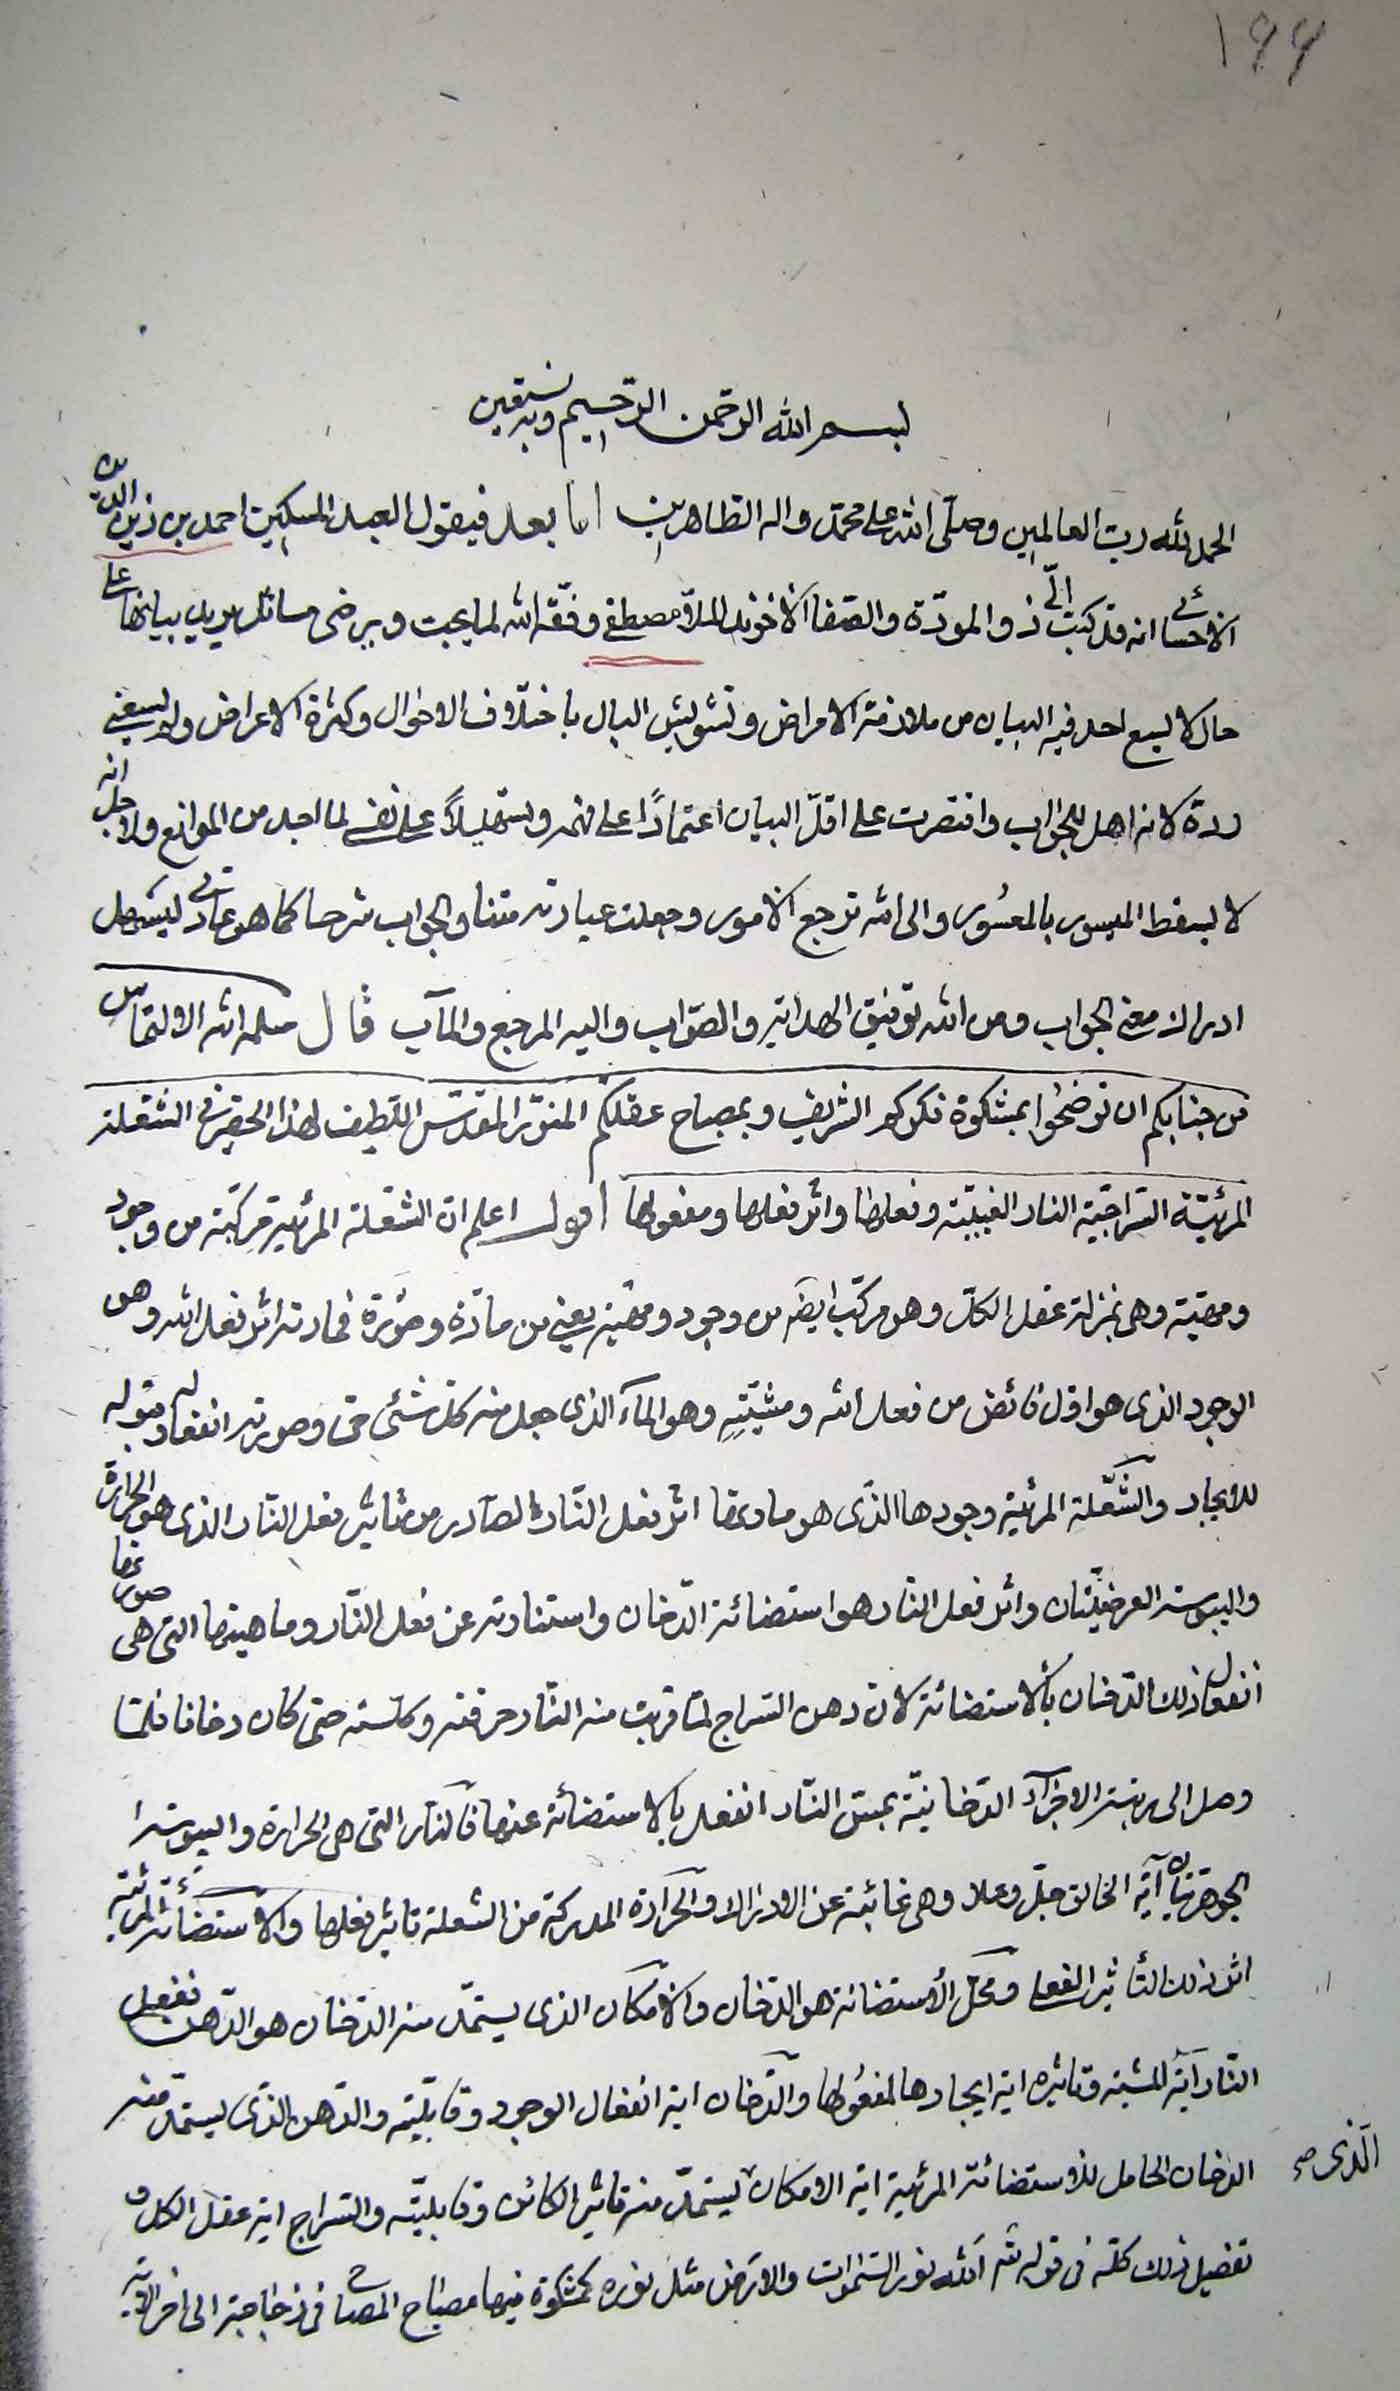 ١٩٩
بسم الله الرحمن الرحيم وبه نستعين
الحمد لله رب العالمين وصلّى الله على محمد واله الطاهرين اما بعد فيقول العبد المسكين احمد بن زين الدين
الاحسائي انه قد كتب الىّ ذو المودّة والصفا الاخوند الملا مصطفى وفّقه الله لما يحب ويرضى مسائل يريد بيانها على
حال لا يسع احد فيه البيان من ملازمة الامراض وتشويش البال باختلاف الاحوال وكثرة الاعراض ولم يسعنى
ردّه لانه اهل للجواب واقتصرت على اقلّ البيان اعتمادًا على فهمه وتسهيلاً على نفسى لما اجد من الموانع ولاجل انه
لا يسقط الميسور بالمعسور والى الله ترجع الامور وجعلت عبارته متنا والجواب شرحا كما هو عادتى ليسهل
ادراك معنى الجواب ومن الله توفيق الهداية والصّواب واليه المرجع والمآب قال سلمه الله الالتماس
من جنابكم ان توضحوا بمشكوة فكركم الشريف وبمصباح عقلكم المنوّر المقدس اللطيف لهذا الحقير فى الشعلة
المرئيّة السّراجيّة النار الغيبيّة وفعلها واثر فعلها ومفعولها اقول اعلم ان الشعلة المرئية مركبة من وجود
ومهيّة وهى بمنزلة عقل الكل وهو مركّب ايضا من وجود ومهيّة يعنى من مادّة وصورة فمادته اثر فعل الله وهو
الوجود الذى هو اول فائض من فعل الله ومشيّتِهِ وهو الماء الذى جعل منه كل شئ حى وصورته انفعاله وقبوله
للايجاد والشّعلة المرئية وجودها الذى هو مادتها اثر فعل النار الصادر من تاثير فعل النار الذى هو الحرارة
واليبوسة العرضيّتان واثر فعل النار هو استضائة الدّخان واستنارته عن فعل النار وماهيتها التى هى صورتها
انفعال ذلك الدّخان بالاستضائة لان دهن السراج لمّا قربت منه النّار حرقته وكلّسته حتى كان دخانا فلمّا
وصل الى رتبة الاجزآء الدّخانيّة بمسّ النّار انفعل بالاستضائة عنها فالنار التى هى الحرارة واليبوسة
الجوهريتان آية الخالق جلّ وعلا وهى غائبة عن الادراك والحرارة المدركة من الشعلة تاثير فعلها والاستضائة المرئية
اثر ذلك التأثير الفعلى ومحلّ الأستضائة هو الدّخان والامكان الذى يستمدّ منه الدّخان هو الدّهن ففعل
النّار آية المشية وتاثيره اية ايجادها لمفعولها والدّخان اية انفعال الوجود وقابليّته والدّهن الذى يستمدّ منه
الدخان الحامل للاستضائة المرئية اية الامكان يستمدّ منه تاثير الكائن وقابليّته والسّراج اية عقل الكل و
الّذى صح
تفصيل ذلك كلّه فى قوله تعالى الله نور السّموات والارض مثل نوره كمشكوة فيها مصباح المصباح فى زجاجة الى اخر الاية